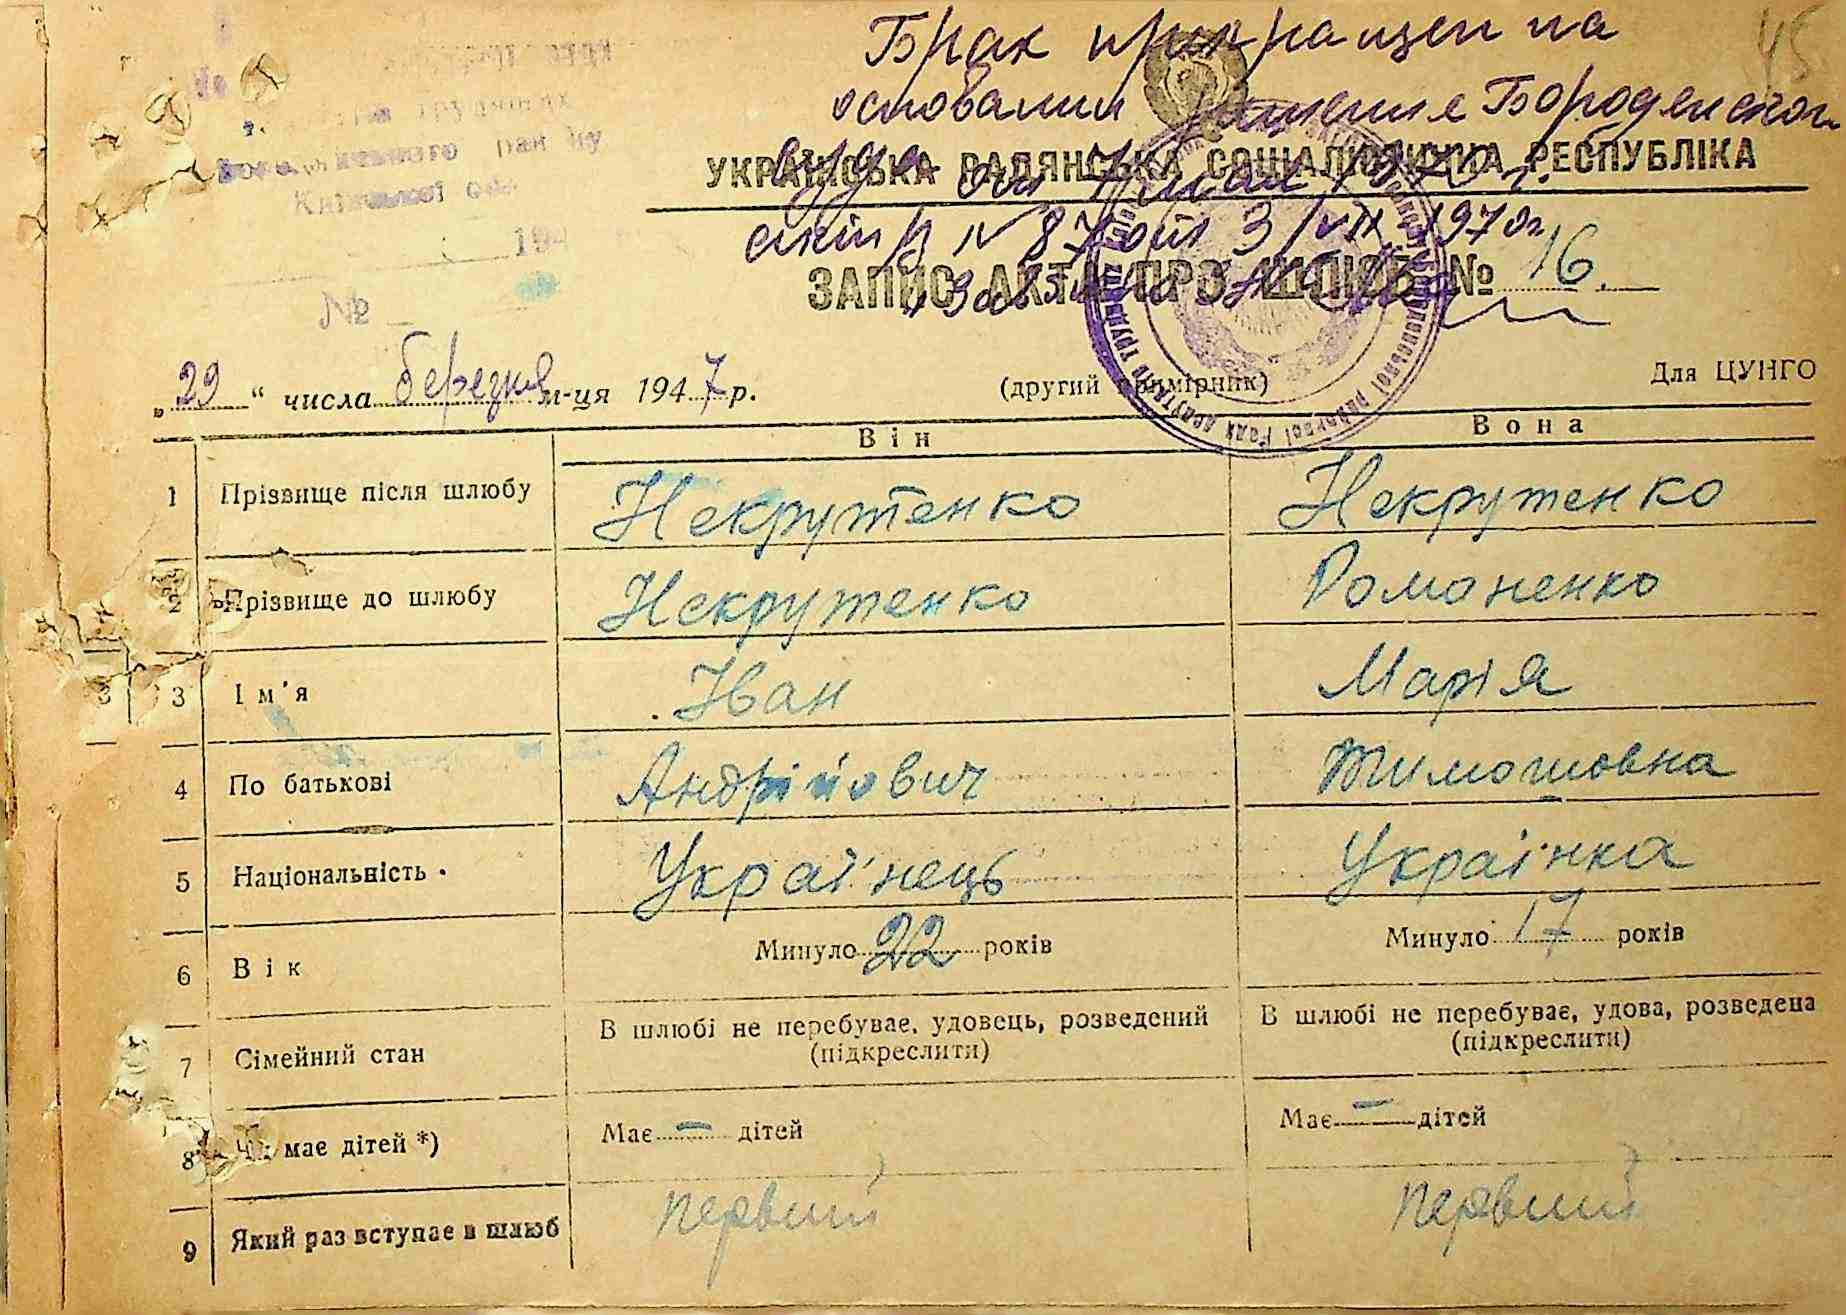 Брак прикращен на
45
основании решения Бороденског
УКРАЇНСЬКА РАДЯНСЬКА СОЦІАЛІСТИЧНА РЕСПУБЛІКА
суда от 1970 г.
№ 87 от 3/VII 1970г.
ЗАПИС АКТА ПРО ШЛЮБ № 16.
194
№
„29“ числа березня м-ця 1947 р.
(другий примірник)
Для ЦУНГО
Він Вона
1 Прізвище після шлюбу Некрутенко Некрутенко
2 Прізвище до шлюбу Некрутенко Романенко
3 3 Ім'я Іван Марія
4 По батькові Андрійович Тимошовна
5 Національність Українець Українка
6 Вік Минуло 22 років Минуло 17 років
7 Сімейний стан В шлюбі не перебуває, удовець, розведений (підкреслити) В шлюбі не перебуває, удова, розведена (підкреслити)
8 Чи має дітей *) Має — дітей Має — дітей
9 Який раз вступає в шлюб первий первий